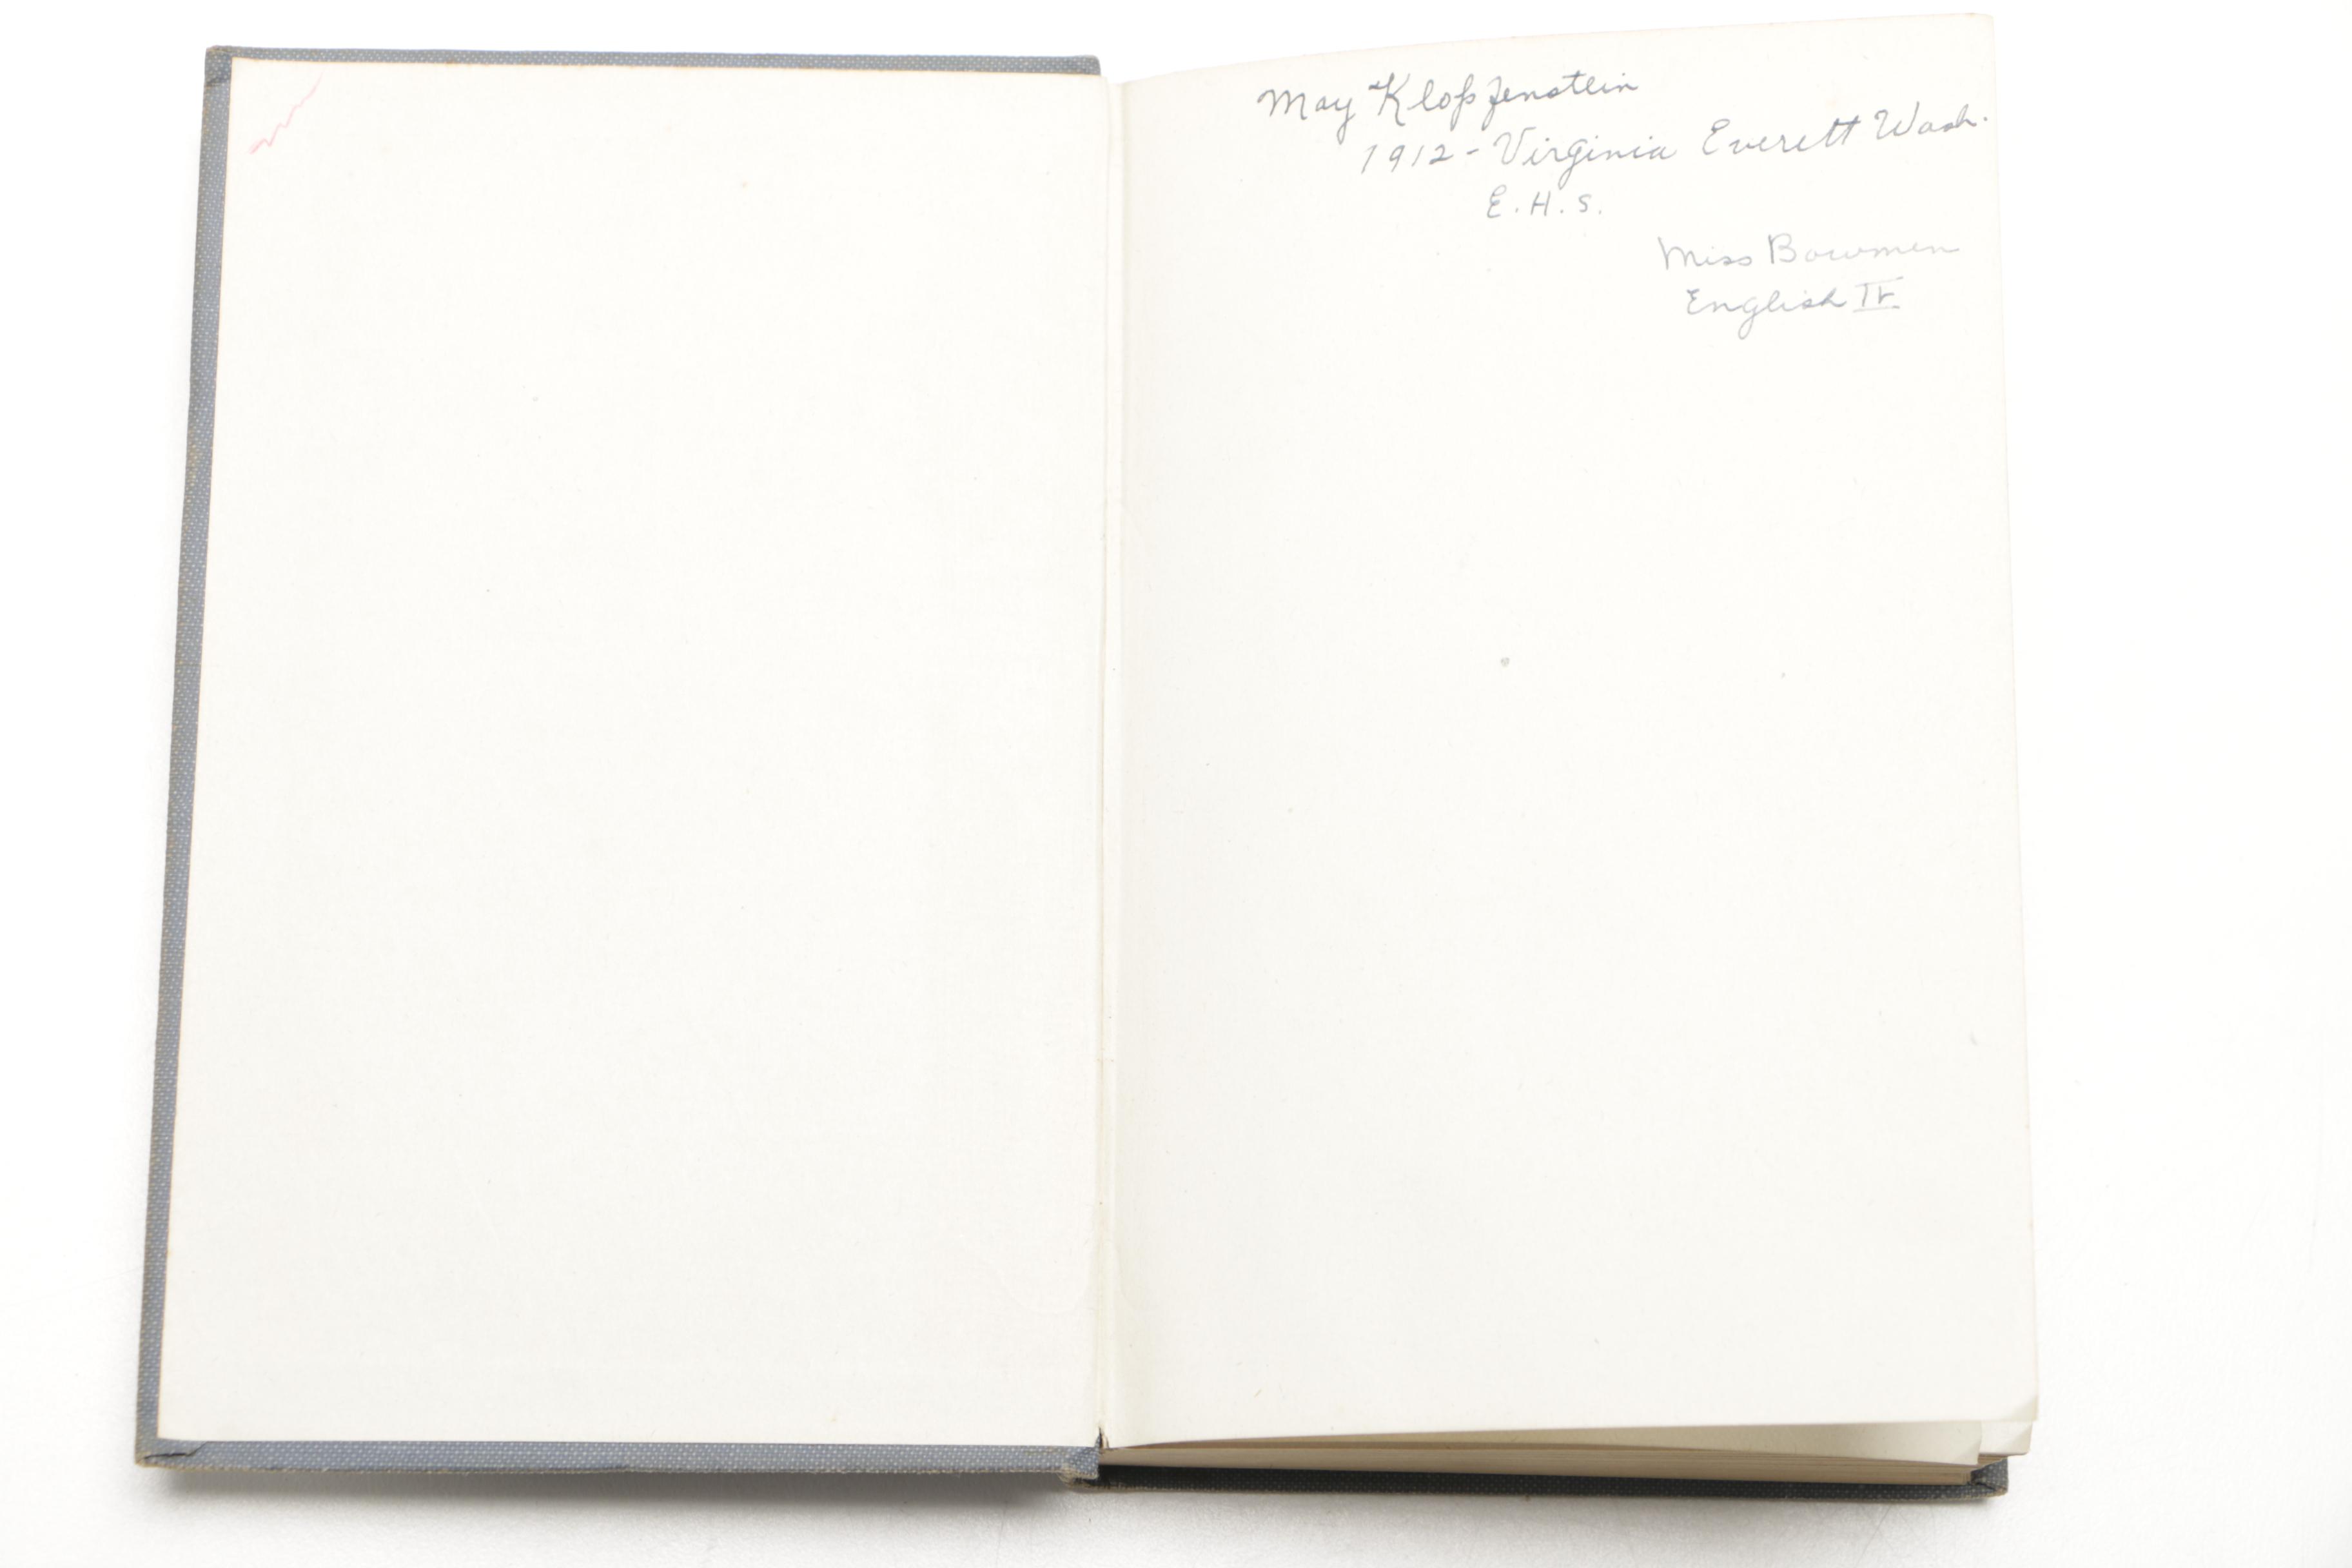 May Klopfenstein
1912 - Virginia Everett Wash.
E.H.S.
Miss Bowmen
English IV